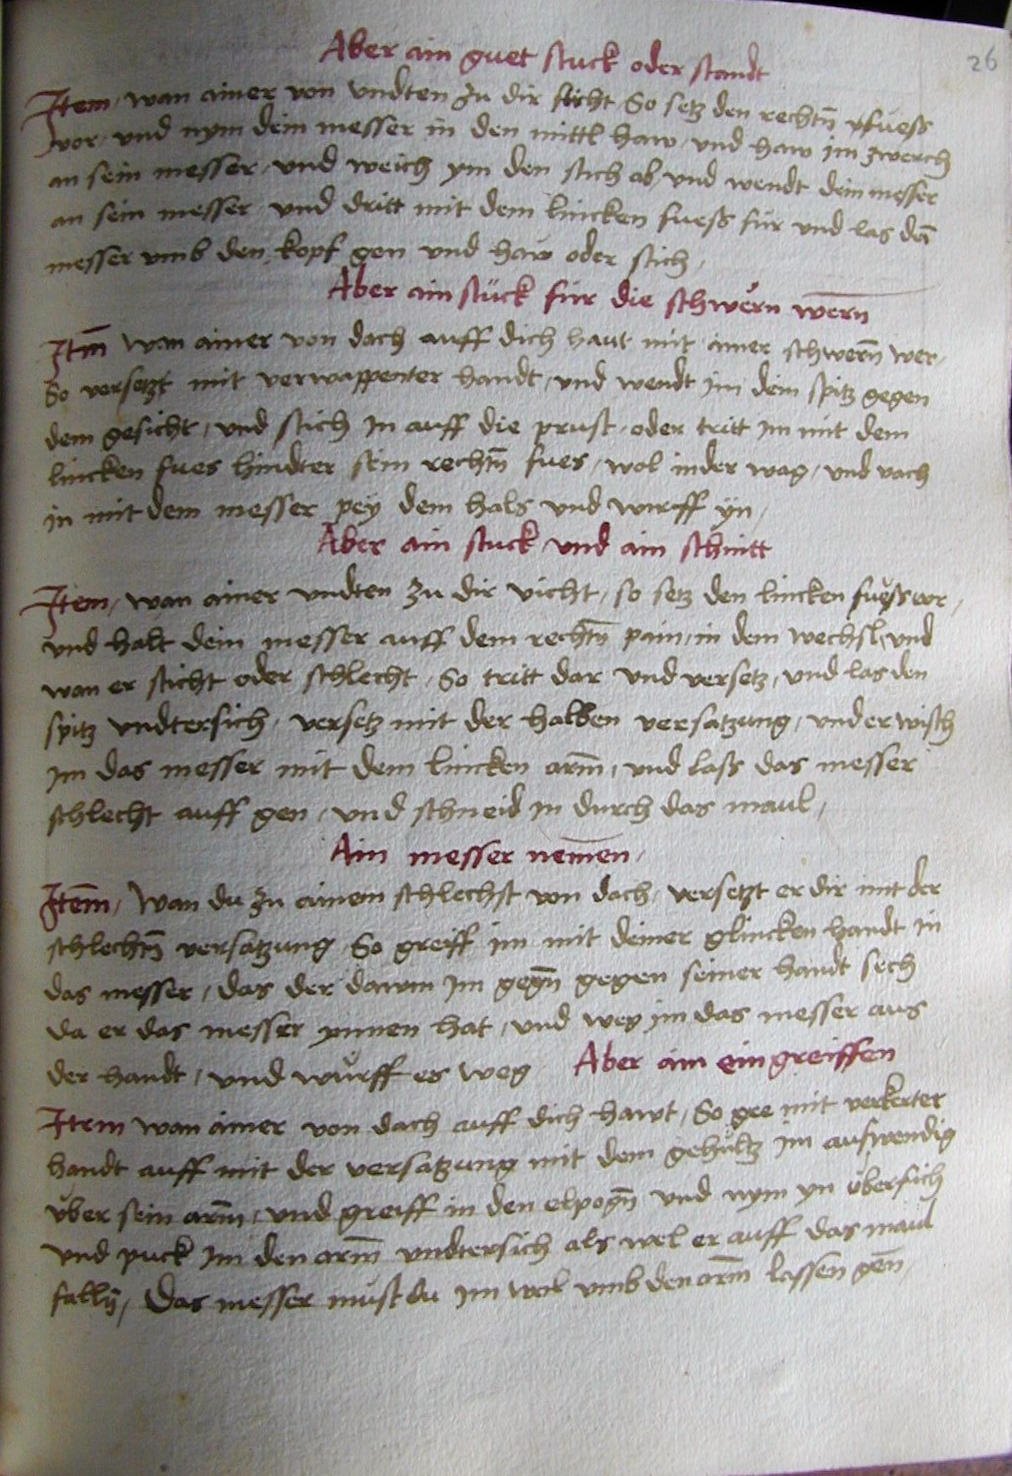 26
Aber ain guet stuck oder standt
Item, wan ainer von vndten zu dir sticht, So setz den rechtn̄ fuess
vor, vnd nym dein messer in den mittl haw, vnd haw im zwerch
an sein messer, vnd weich ym den stich ab, vnd wendt dein messer
an sein messer, vnd dritt mit dem lincken fuess für vnd las dei
messer vmb den kopf gen vnd haw oder stich,
Aber ain stück für die schwern wern
Itm̄ wan ainer von dach auff dich haut mit ainer schwern̄ wer,
So versetzt mit verwappenter handt, vnd wendt im dein spitz gegen
dem gesicht, vnd stich in auff die prust, oder tritt im mit dem
lincken fues hindter sein rechtn̄ fues, wol inder wag, vnd vach
in mit dem messer pey dem hals vnd wirff yn,
Aber ain stuck vnd ain schnitt
Item, wan ainer vndten zu dir vicht, so setz den lincken fuess vor,
vnd halt dein messer auff dem rechtn̄ pain, in dem wechsl, vnd
wan er sticht oder schlecht, So tritt dar vnd versetz, vnd las den
spitz vndtersich, versetz mit der halben versatzung, vnd erwisch
im das messer mit dem lincken arm̄, vnd lass das messer
schlecht auff gen, vnd schneid in durch das maul,
Ain messer nemen,
Item̄, wan du zu ainem schlechst von dach, versetzt er dir mit der
schlechtn̄ versatzung, So greiff im mit deiner glincken handt in
das messer, das der dawm im gegn̄ gegen seiner handt sech
da er das messer ynnen hat, vnd weg im das messer aus
der handt, vnd würff es weg Aber ain eingreiffen
Item wan ainer von dach auff dich hawt, So gee mit verkerter
handt auff mit der versatzung mit dem gehültz im auswendig
über sein arm̄, vnd greiff in den elpogn̄ vnd nym yn übersich
vnd puck im den arm̄ vndtersich als wel er auff das maul
falln̄, Das messer must du im wol vmb den arm̄ lassen gen̄,